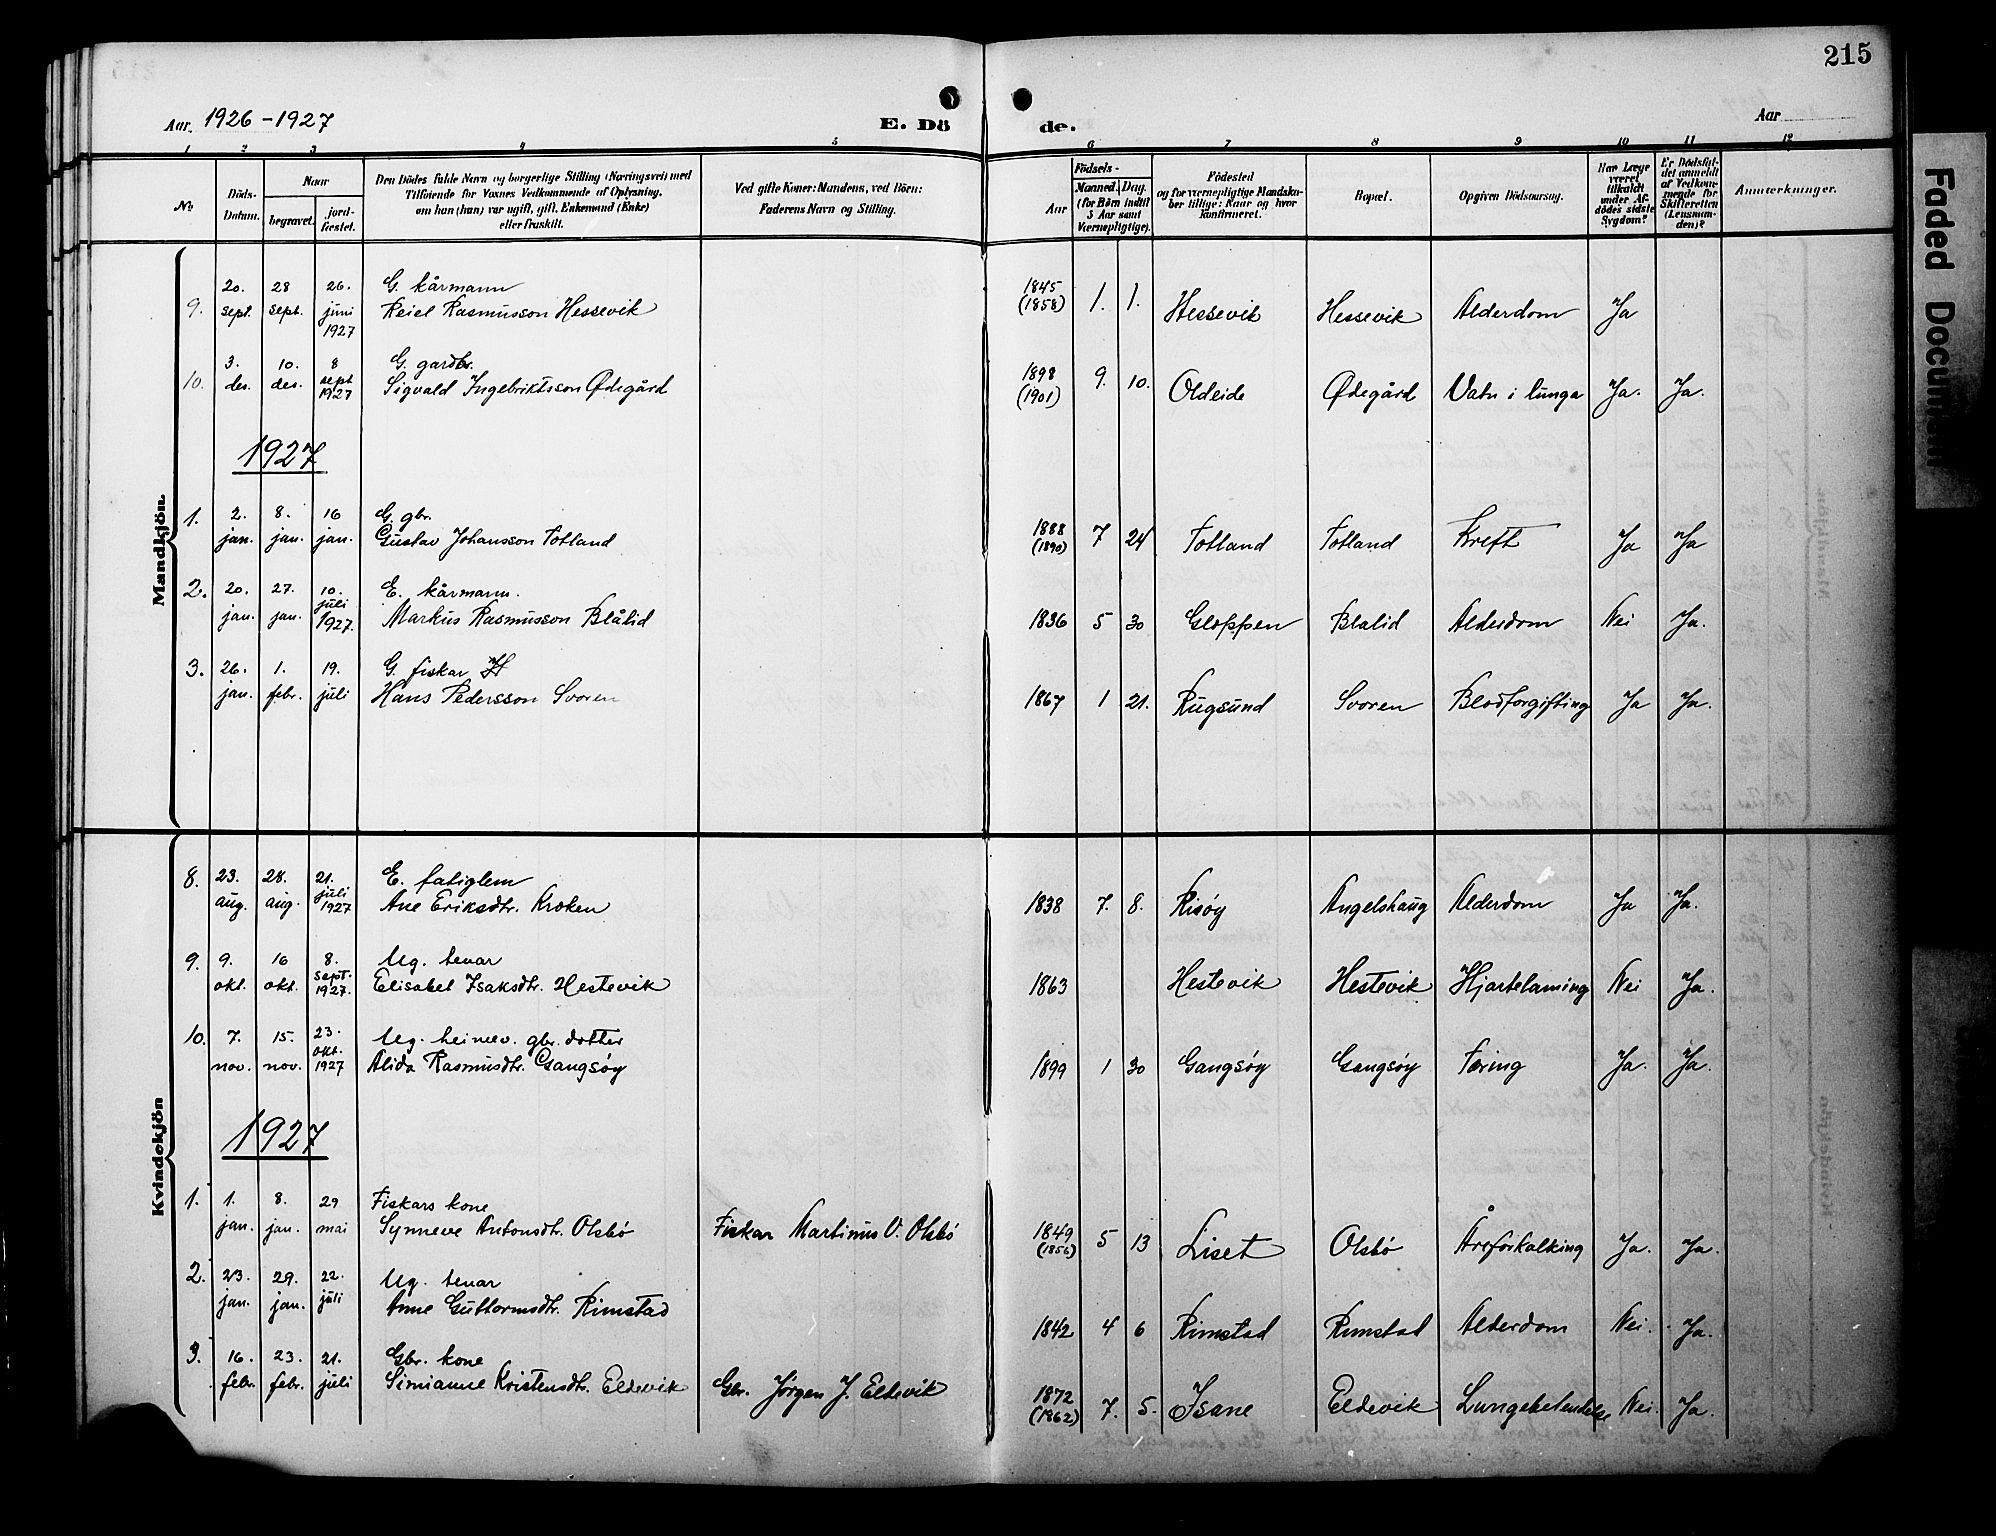 215
Aar. 1926-1927
E. Dö de.
Aar
1 2 3 4 5 6 7 8 9 10 11 12
No
Döds-Datum.
Naar
begravet.
jord-fæstet.
Den Dödes fulde Navn og borgerlige Stilling (Næringsvei) med
Tilföiende for Voxnes Vedkommende af Oplysning,
om han (hun) var ugift, gift, Enkemand (Enke)
eller fraskilt.
Ved gifte Koner: Mandens, ved Börn:
Faderens Navn og Stilling.
Födsels-
Aar
Maaned. Dag.
(for Börn indtil
5 Aar samt
Værnepligtige).
Födested
og for værnepligtige Mandska-
ber tillige: Naar og hvor
Konfirmeret.
Bopæl.
Opgiven Dödsaarsag.
Har Læge
været
tilkaldt
under Af-
dödes sidste
Sygdom?
Er Dödsfal-
det anmeldt
af Vedkom-
mende for
Skifteretten
(Lensman-
den)?
Anmærkninger.
Mandkjön.
9. 20. sept. 28 sept. 26. juni 1927 G. kårmann
Reiel Rasmusson Hessevik 1845 (1858) 1. 1. Hessevik Hessevik Alderdom Ja
10. 3. des. 10. des. 8 sept 1927 G. gardbr.
Sigvald Ingebriktsson Ødegård 1898 (1901) 9. 10. Oldeide Ødegård Vatn i lunga Ja. Ja.
1927
1. 2. jan. 8. jan. 16 jan. G. gbr.
Gustav Johansson Totland 1888 (1890) 7 24 Totland Totland Kreft Ja Ja
2. 20. jan. 27. jan. 10. juli 1927. E. kårmann.
Markus Rasmusson Blålid 1836 5 30 Gloppen Blalid Alderdom Nei Ja.
3. 26. jan. 1. febr. 19. juli G. fiskar
Hans Pedersson Svoren 1867 1 21. Rugsund Svoren Blodforgifting Ja Ja.
Kvindekjön
8. 23. aug. 28. aug. 21. juli 1927 E. fatiglem
Ane Eriksdtr. Kroken 1838 7. 8. Risøy Angelshaug Alderdom Ja Ja.
9. 9. okt. 16 okt. 8. sept. 1927. Ug. tenar
Elisabet Isaksdtr. Hestevik 1863 Hestevik Hestevik Hjartelaming Nei Ja.
10. 7. nov. 15. nov. 23. okt. 1927 Ug. heimev. gbr. dotter
Alida Rasmusdtr. Gangsøy 1899 1 30 Gangsøy Gangsøy Tæring Ja. Ja.
1927
1. 1. jan. 8. jan. 29 mai Fiskars kone
Synneve Antonsdtr. Olsbø Fiskar Martinus O. Olsbø 1849 (1856) 5 13 Liset Olsbø Åreforkalking Ja. Ja.
2. 23. jan. 29. jan. 22. juli Ug. tenar
Anne Guttormsdtr. Rimstad 1842 4 6 Rimstad Rimstad Alderdom Nei. Ja.
3. 16. febr. 23. febr. 21. juli Gbr. kone
Simianne Kristensdtr. Eldevik Gbr. Jørgen J. Eldevik 1872 (1962) 7. 5. Isane Eldevik Lungebetendelse Nei. Ja.
Faded Document